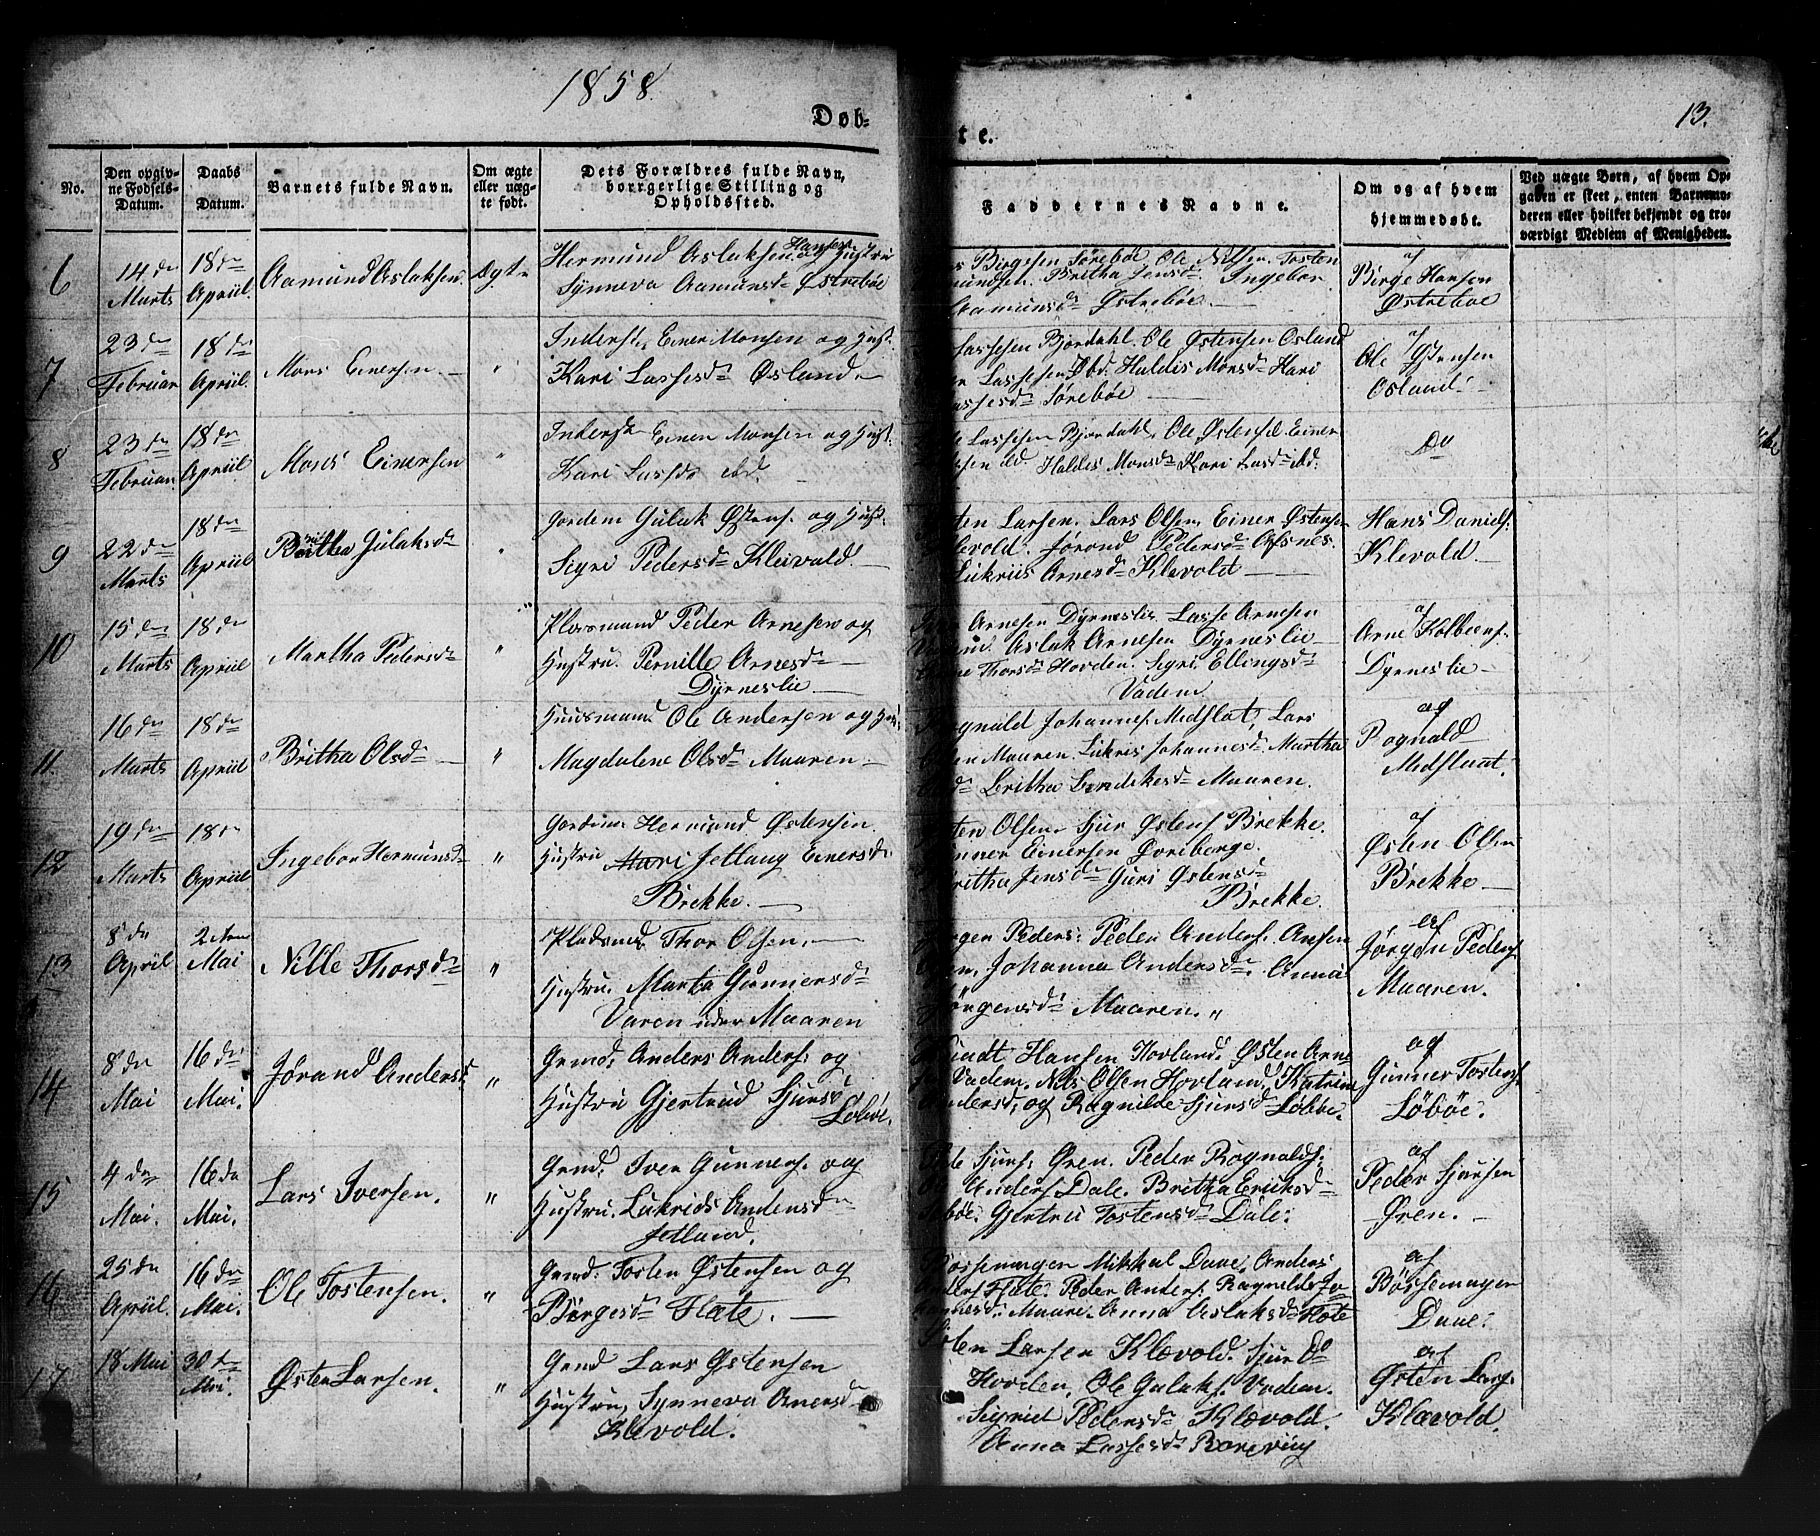 1858
Døb-
te.
13.
No.
Den opgivne Fødsels-Datum.
Daabs Datum.
Barnets fulde Navn.
Om ægte eller uægte født.
Dets Forældres fulde Navn, borrgerlige Stilling og Opholdssted.
Faddernes Navne.
Om og af hvem hjemmedøbt.
Ved uægte Børn, af hvem Opgaven er skeet, enten Barnemoderen eller hvilket bekjendt og troværdigt Medlem af Menigheden.
6
14 de Marts
18 de Apriil
Aamund Aslaksen
Ægte
Hermund Aslaksen Hansen og Hustru
Synneva Aamunsd Østrebøe
Birgesen Sørebøe, Ole Nilsen, Tosten
Britha Jensd Ingebor
Aamunsd Østrebøe
af
Birge Hansen
Østrebøe
7
23 de Februar
18 de Apriil
Mons Einersen
"
Inderst, Einer Monsen og Hust
Kari Lassesd Osland
Lassesen Bjordahl, Ole Østensen Osland
Lassesen ibd. Haldis Monsd Kari
Lassesd Sørebøe
af
Ole Østensen
Osland
8
23 de Februar
18 de Apriil
Mons Einersen
"
Inderst Einer Monsen og Hust
Kari Lassd ibd.
Lassesen Bjordahl, Ole Østensd Einer
ibd. Haldis Monsd Kari Lasd ibd.
Do
9
22 de Marts
18 de Apriil
Britha Gulaksd
"
Gordem Gulak Østens. og Hust
Sigri Pedersd Kleivold
Larsen. Lars Olsen, Einer Østensen
Klevold. Jørond Pedersd Ofsnes.
Lukriis Arnesd Klevold
Hans Daniels.
Klevold
10
15 de Marts
18 de Apriil
Martha Pedersd
"
Plasmand Peder Arnesen og
Hustru. Pernille Arnesd
Dyrneslie
Arnesen Dyrneslie Lasse Arnesen
Aslak Arnesen Dyrneslie
Thorsd Hovden. Sigri Ellingsd
Vadem
af
Arne Kolbeens.
Dyrneslie
11.
16 de Marts
18 de Apriil
Britha Olsd
"
Huusmand Ole Andersen og Hust
Magdalene Olsd Maaren
Rognald Johannes. Midslat, Lars
Olsen Maaren. Lukris Johannesd. Martha
Britha Maaren.
af
Rognald
Midslaat.
12
19 de Marts
18 de Apriil
Ingebor Hermunsd
"
Gordmn Hermund Østensen
Hustru Mari Jetlaug Einersd
Brekke.
Østen Olsen Sjur Østens Brekke.
Einersen
Britha Jensd Guri Østensd
Brekke.
af
Østen Olsen
Brekke
13
8 de April
2den Mai
Nille Thorsd
"
Pladsmd Thor Olsen.
Hustru. Marta Gunnersd
Varen under Maaren
Jørgen Peders: Peder Anders. Ansen
Johanna Andersd. Anna
Jørgensd Maaren. "
af
Jørgen Peders
Maaren.
14
8 de Mai
16 de Mai.
Jørand Andersd
"
Grmd: Anders Anders: og
Hustru Gjertrud Sjursd
Løbøe.
Hansen Hovland: Østen Arne
Vadem. Nils Olsen Hovland, Katrine
Andersd, og Ragnilde Sjursd Løbbe.
af
Gunner Tostens
Løbøe.
15
4 de Mai.
16 de Mai.
Lars Iversen.
"
Grmd. Iver Gunners. og
Hustru. Lukrids Andersd
Jetland.
Ole Sjurs: Øren. Peder Rognalds:
Anders Dale. Britha Eriksd
Løbøe. Gjertru Tostensd Dale:
af
Peder Sjursen
Øren.
16
25 de Apriil
16 de Mai.
Ole Tostensen.
"
Grmd: Tosten Østensen og
Børgesd Flate.
Bossemagen Mikkal Daae, Anders
Anders Flate. Peder Anders. Ragnilde Jo-
hannesd. Maare. Anna Aslaksd Flate
af
Bøssemagen
Daae.
17
18 Mai
30 de Mai.
Østen Larsen.
"
Grmd Lars Østensen
Hustru, Synneva Anersd
Klevold.
Østen Larsen Klævold. Sjur D
Hovden, Ole Gulaks. Vadem.
Sigrid Pedersd Klævold.
Anna Lassesd
af
Østen Lars.
Klævold